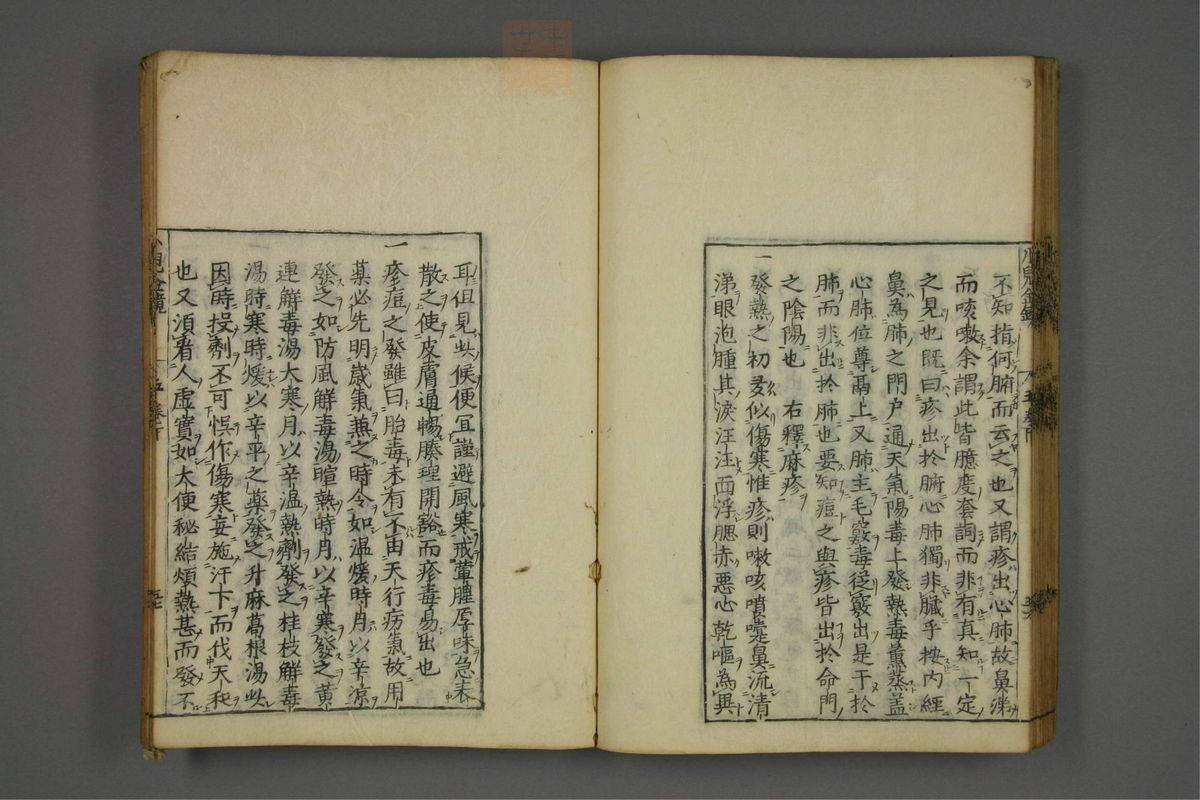 不知指何腑而云之也又謂疹出心肺故鼻涕
而咳嗽余謂此皆臆度套詞而非有真知一定
之見也既曰疹出於腑心肺獨非臟乎按内經
鼻為肺之門户通天氣陽毒上發熱毒薰蒸蓋
心肺位尊而上又肺主毛竅毒從竅出是干於
肺而非出於肺也要知痘之與疹皆出於命門
之陰陽也　右釋麻疹
一發熱之初多似傷寒惟疹則嗽咳噴嚏鼻流清
涕眼泡腫其淚汪汪面浮腮赤惡心乾嘔為異
耳但見此候便宜謹避風寒戒葷腥厚味急表
散之使皮膚通暢腠理開豁而疹毒易出也
一疹痘之發雖曰胎毒未有不由天行疠氣故用
藥必先明歲氣兼之時令如温煖時月以辛凉
發之如防風解毒湯暄熱時月以辛寒發之黄
連解毒湯大寒月以辛温熱劑發之桂枝解毒
湯時寒時煖以辛平之藥發之升麻葛根湯此
因時投劑不可悞作傷寒妄施汗下而伐天和
也又須看人虚實如大便秘結煩熱甚而發不